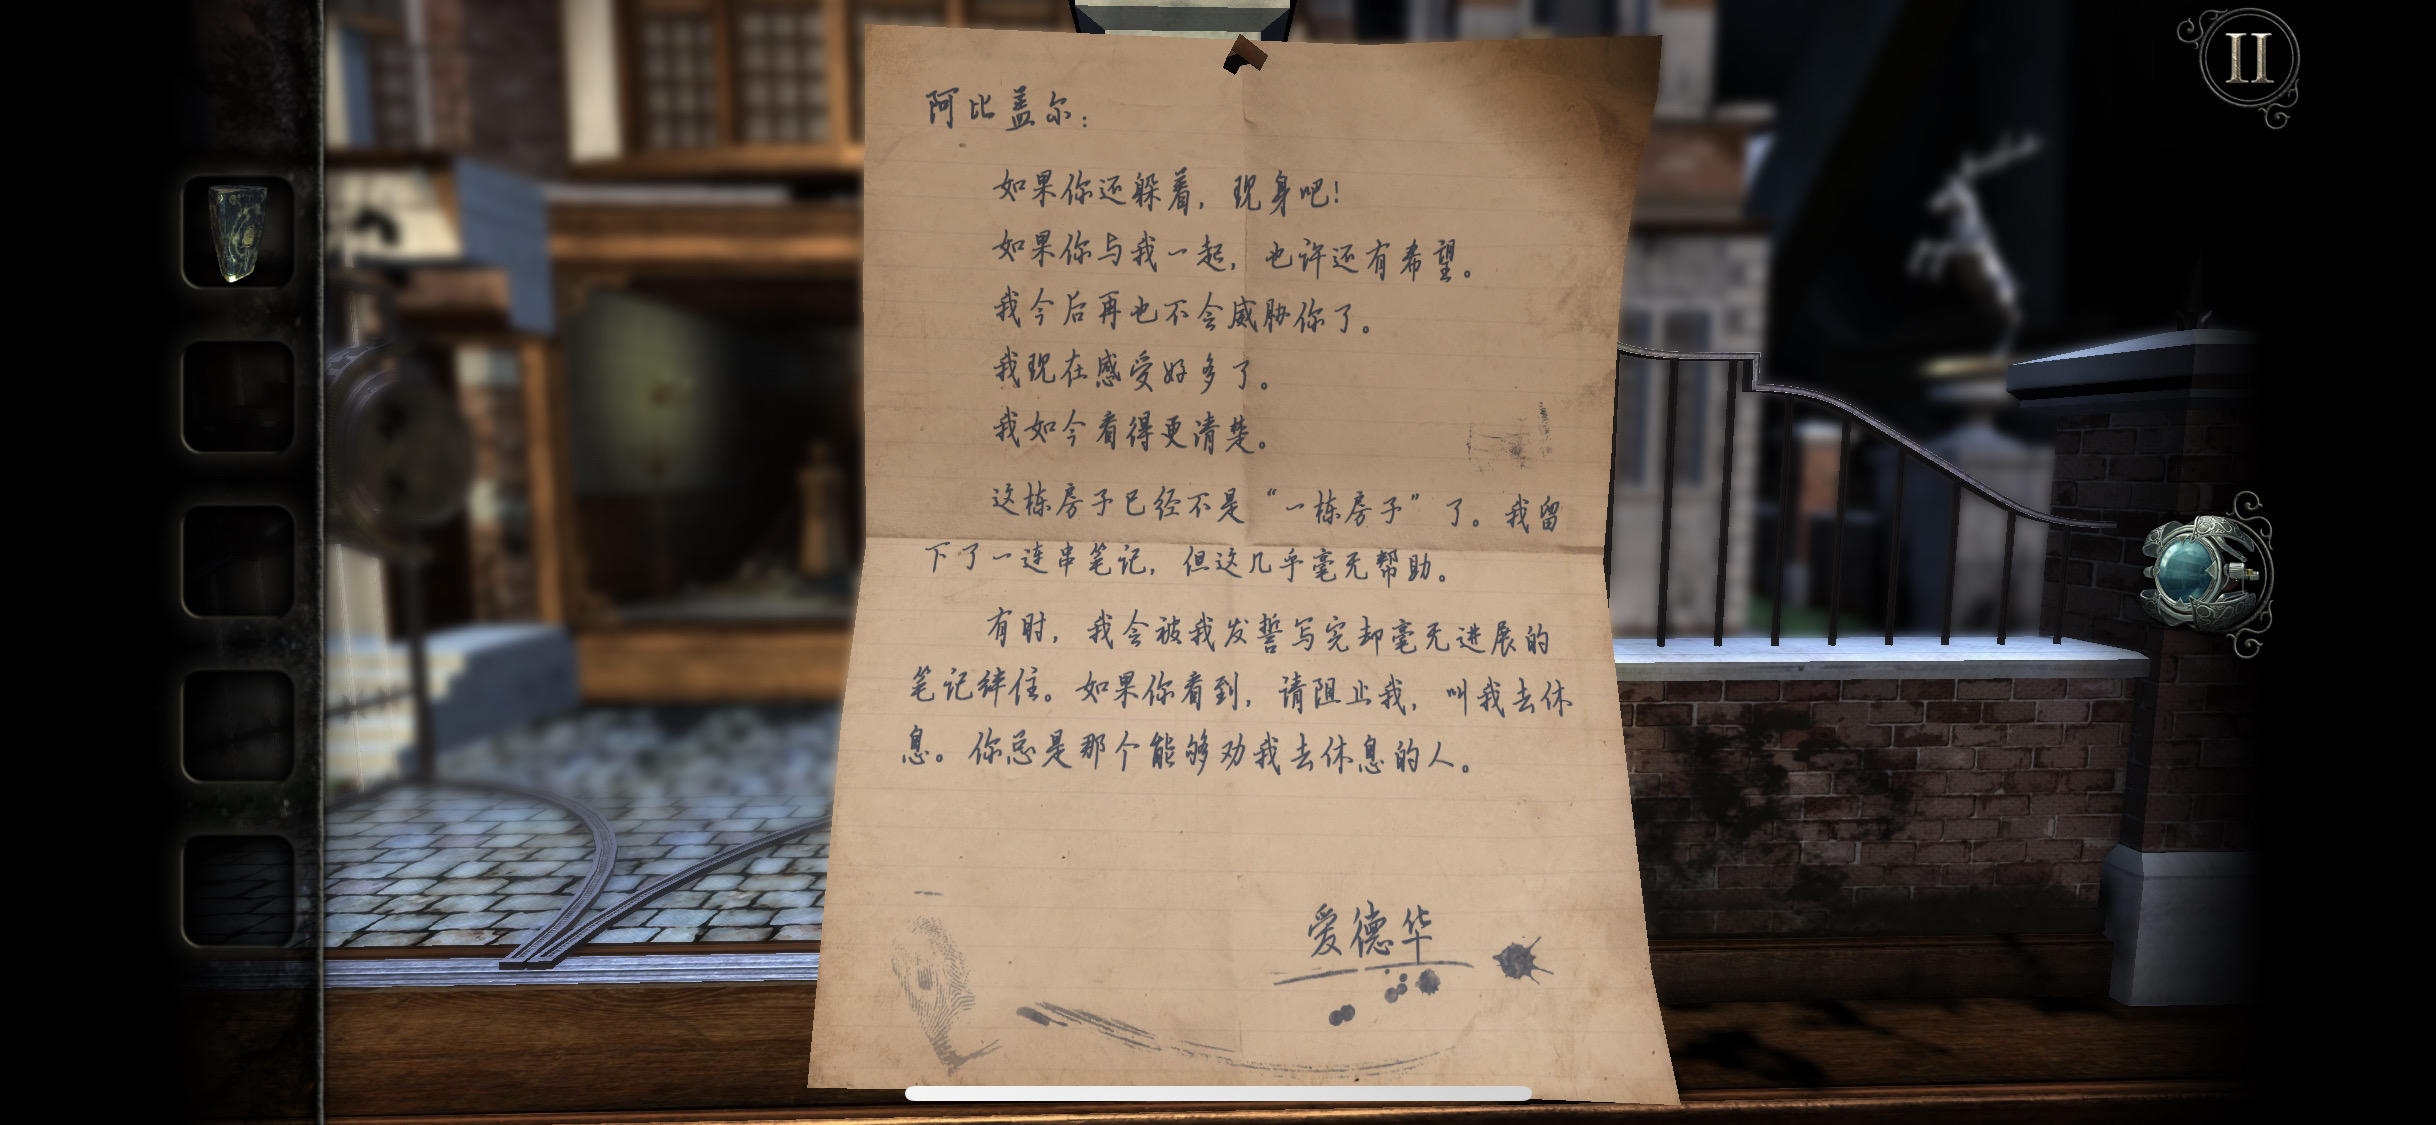 阿比盖尔：
如果你还躲着，现身吧！
如果你与我一起，也许还有希望。
我今后再也不会威胁你了。
我现在感受好多了。
我如今看得更清楚。
这栋房子已经不是“一栋房子”了。我留
下了一连串笔记，但这几乎毫无帮助。
有时，我会被我发誓写完却毫无进展的
笔记绊住。如果你看到，请阻止我，叫我去休
息。你总是那个能够劝我去休息的人。
爱德华
II